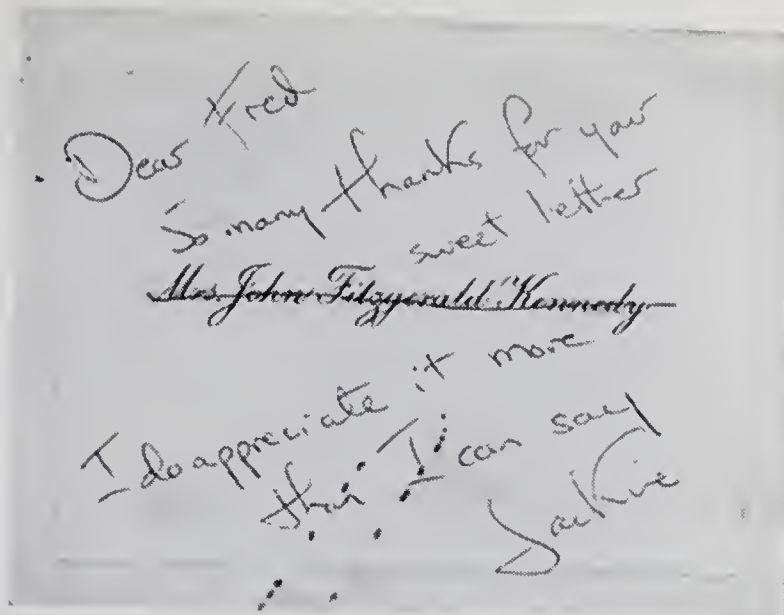 Dear Fred
So many thanks for your
sweet letter
Mrs John Fitzgerald Kennedy
I do appreciate it more
than I can say
Jackie